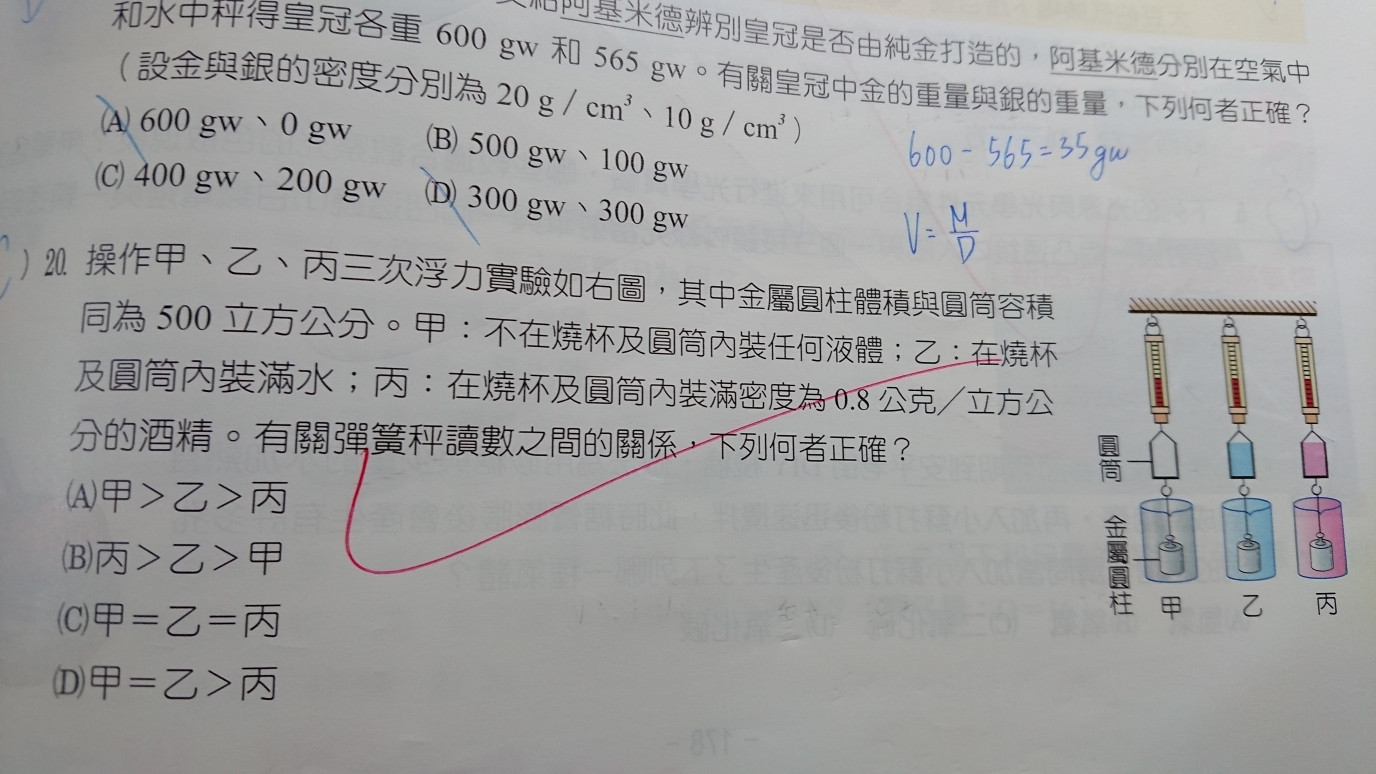 阿基米德辨別皇冠是否由純金打造的，阿基米德分別在空氣中
和水中秤得皇冠各重 600 gw 和 565 gw。有關皇冠中金的重量與銀的重量，下列何者正確？
（設金與銀的密度分別為 20 g／cm³、10 g／cm³）
(A) 600 gw、0 gw (B) 500 gw、100 gw
(C) 400 gw、200 gw (D) 300 gw、300 gw
600 - 565 = 35 gw
V = M/D
) 20. 操作甲、乙、丙三次浮力實驗如右圖，其中金屬圓柱體積與圓筒容積
同為 500 立方公分。甲：不在燒杯及圓筒內裝任何液體；乙：在燒杯
及圓筒內裝滿水；丙：在燒杯及圓筒內裝滿密度為 0.8 公克／立方公
分的酒精。有關彈簧秤讀數之間的關係，下列何者正確？
(A)甲＞乙＞丙
(B)丙＞乙＞甲
(C)甲＝乙＝丙
(D)甲＝乙＞丙
圓筒
金屬圓柱
甲 乙 丙
- 178 -